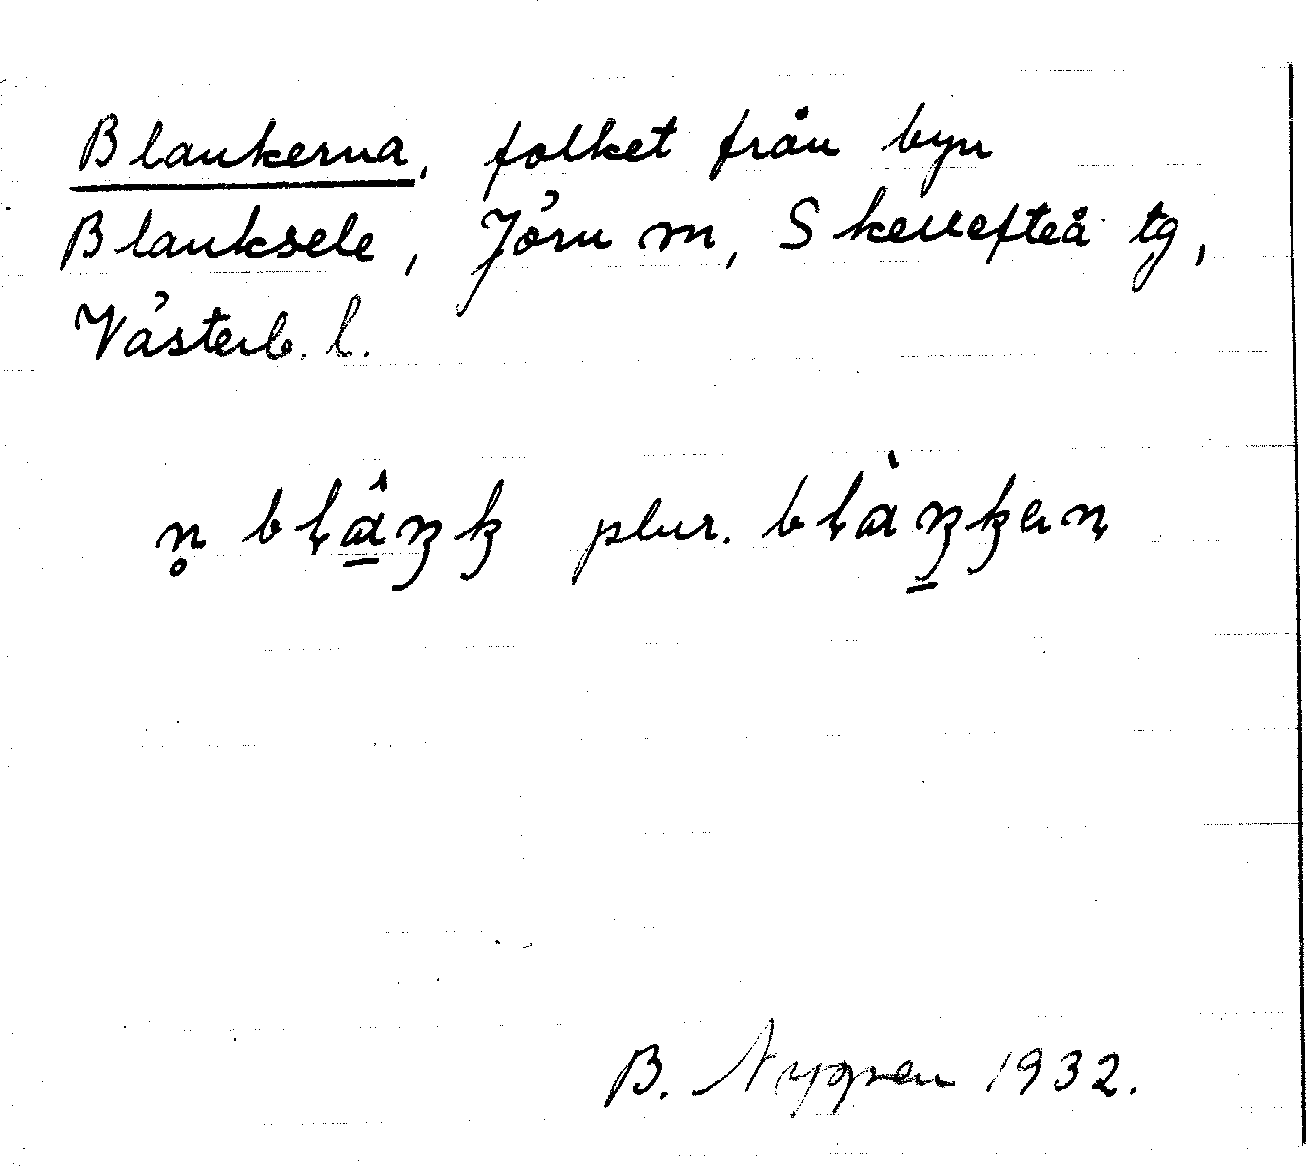 Blankerna, folket från byn
Blanksele, Jörn m, Skellefteå tg,
Västerb. l.
plur.
B. Nygren 1932.